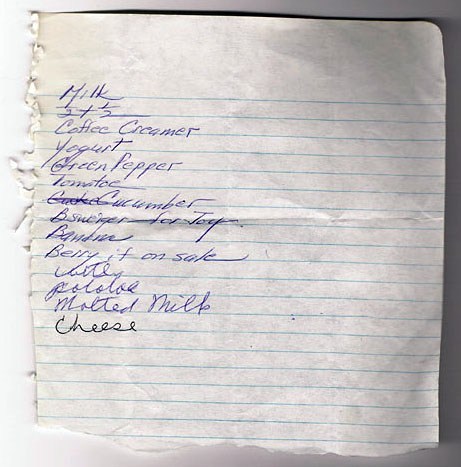 Milk
Coffee Creamer
Yogurt
Green Pepper
Tomatoe
Cucumber
for Joy
Banana
Berry if on sale
potatoe
Malted Milk
Cheese